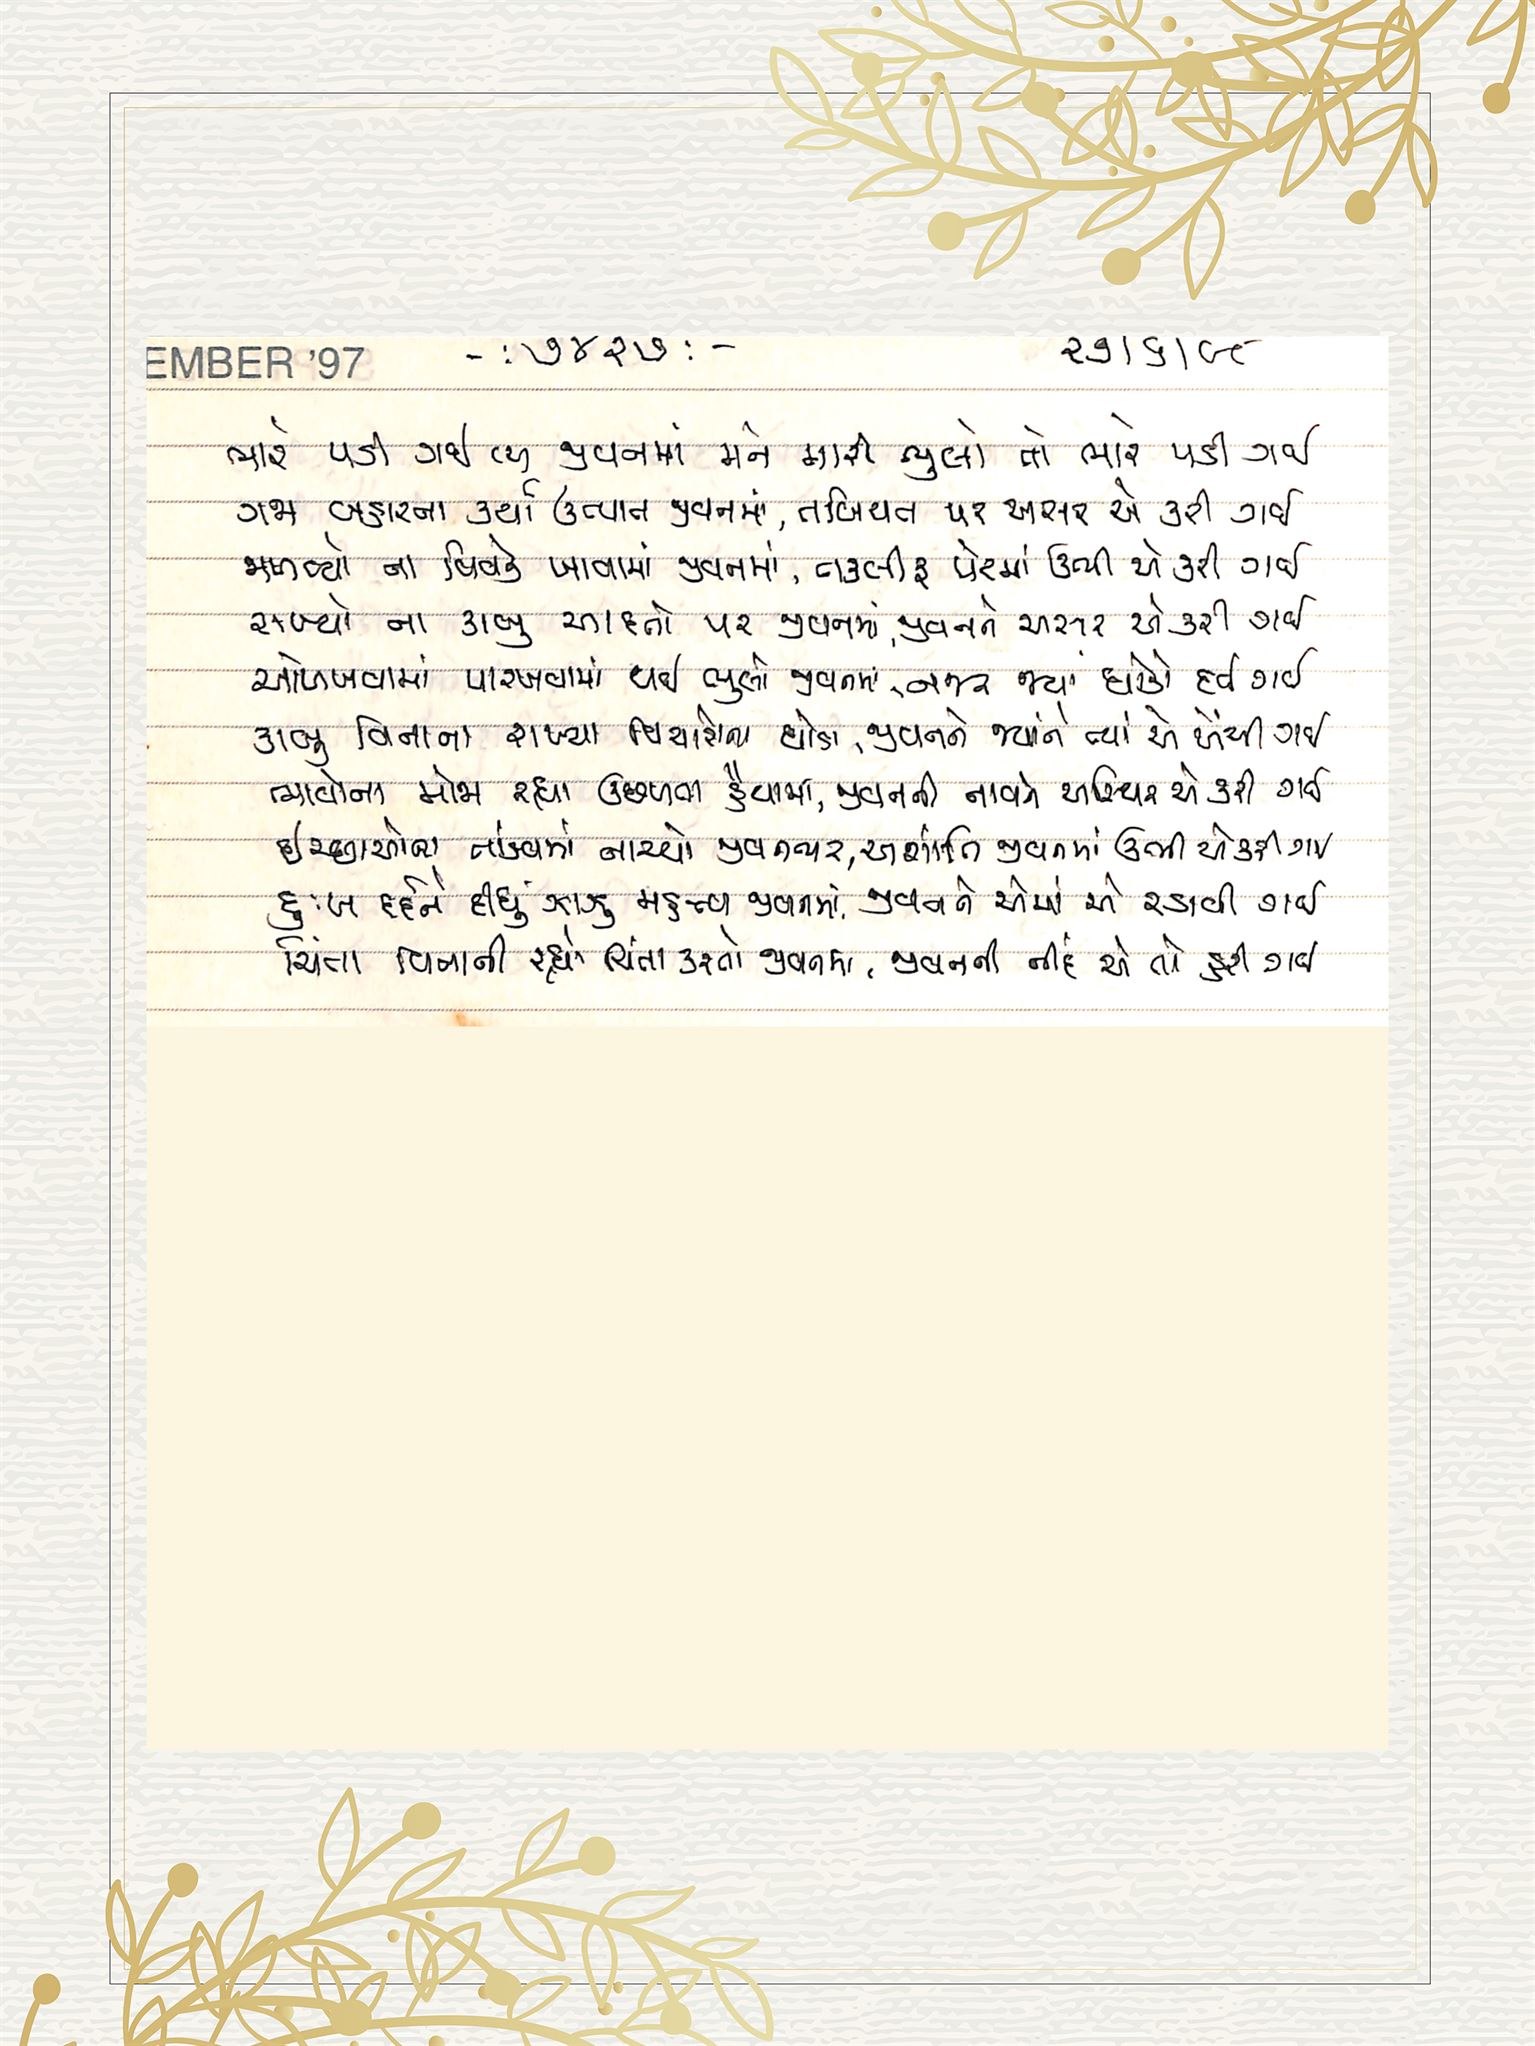 EMBER '97 -:૭૪૨૭:- ૨૭/૬/૯૮
ભારે પડી ગઈ જીવનમાં મને મારી ભુલો તો ભારે પડી ગઈ
ગજા બહારના કર્યા ઉત્પાત જીવનમાં, તબિયત પર અસર એ કરી ગઈ
જાળવ્યો ના વિવેક ખાવામાં જીવનમાં, તકલીફ પેટમાં ઉભી એ કરી ગઈ
રાખ્યો ના કાબુ આદતો પર જીવનમાં, જીવનને અસર એ કરી ગઈ
ઓળખવામાં પારખવામાં થઈ ભુલો જીવનમાં, નજર જ્યાં ધોખો દઈ ગઈ
કાબુ વિનાના રાખ્યા વિચારોના ઘોડા, જીવનને જ્યાંને ત્યાં એ ખેંચી ગઈ
ભાવોના મોજા રહ્યા ઉછળતા હૈયામાં, જીવનની નાવને અસ્થિર એ કરી ગઈ
ઇચ્છાઓના તાંડવમાં નાચ્યો જીવનભર, અશાંતિ જીવનમાં ઉભી એ કરી ગઈ
દુઃખ દર્દને દીધું ઝાઝુ મહત્ત્વ જીવનમાં, જીવનને એમાં એ રડાવી ગઈ
ચિંતા વિનાની રહ્યો ચિંતા કરતો જીવનમાં, જીવનની નીંદ એ તો હરી ગઈ